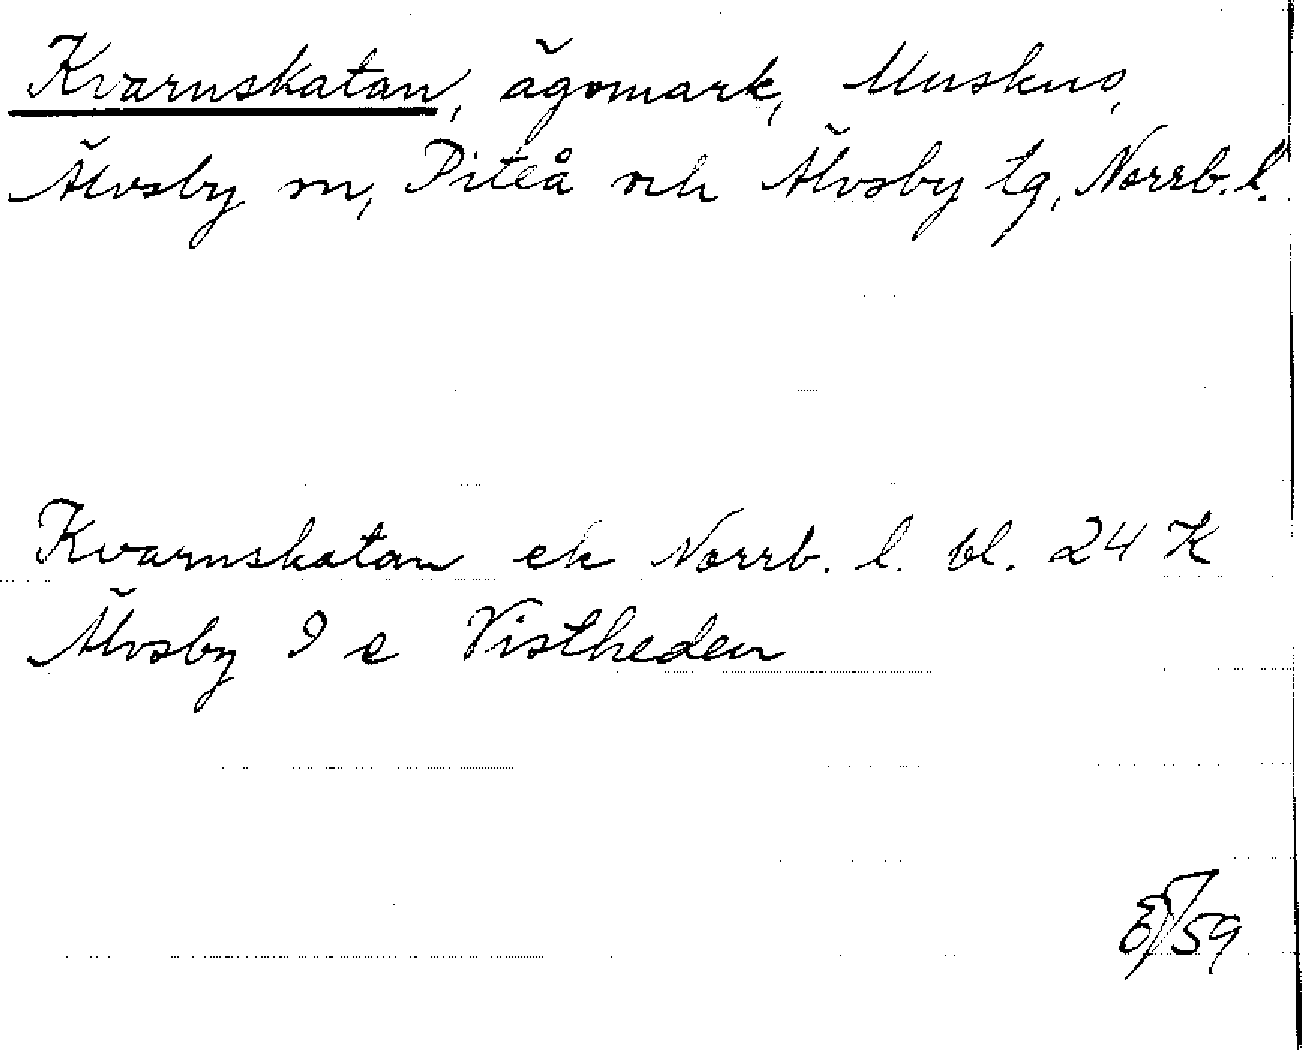 Kvarnskatan, ägomark, Muskus,
Älvsby sn, Piteå och Älvsby tg, Norrb. l.
Kvarnskatan ek Norrb. l. bl. 24 K
Älvsby 9 e Vistheden
/59